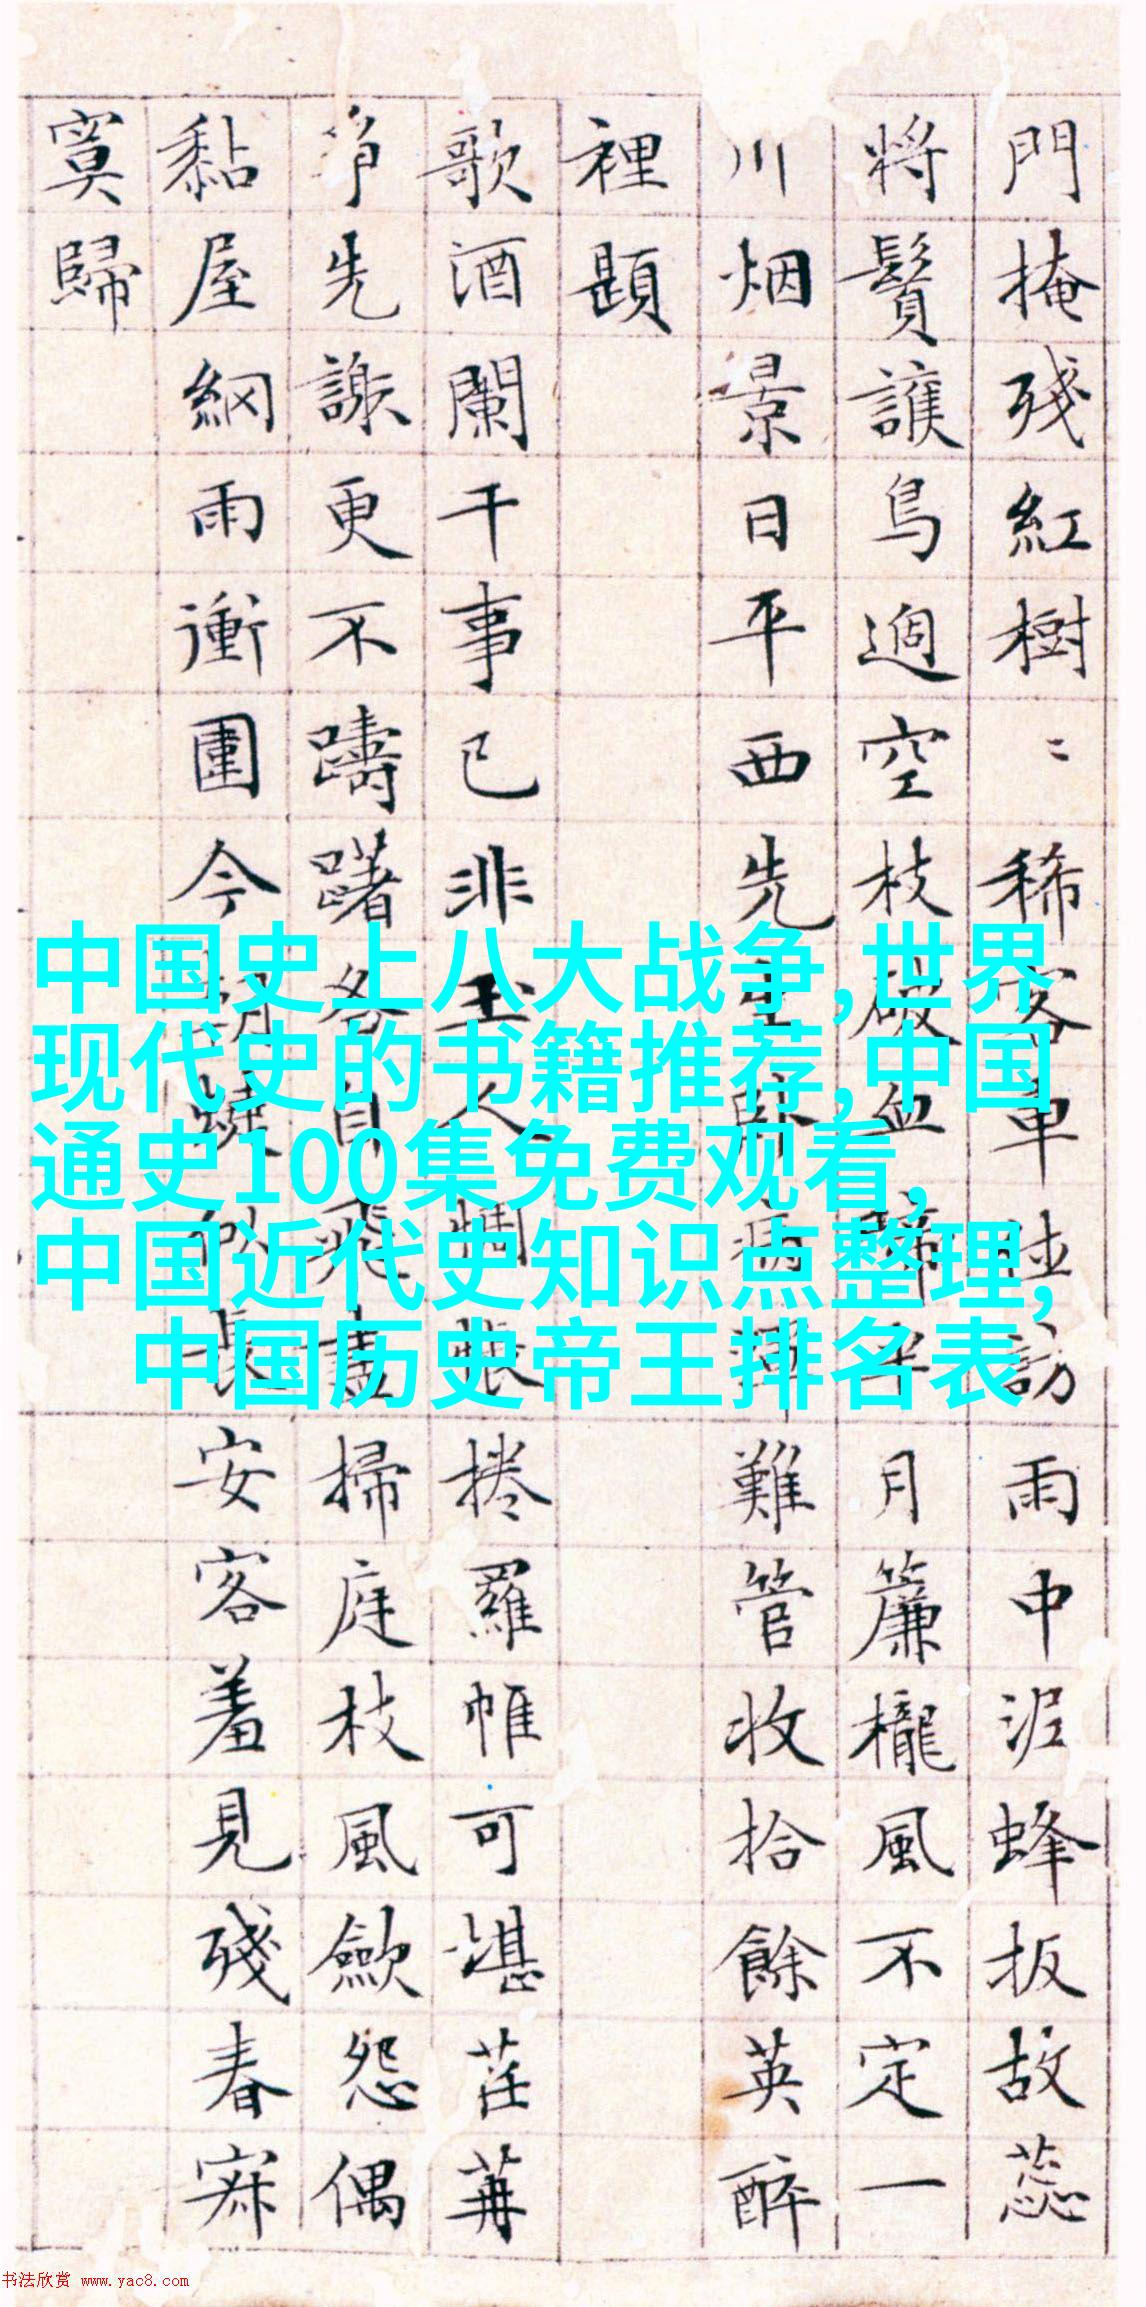 門掩殘紅樹〻稀客車訪雨中泥蜂扳故蕊
將鬢護鳥過空枝破血啼月簾櫳風不定一
川烟景日平西先生臥病渾難管收拾餘英醉
裡題
歌酒闌干事已非玉人惆悵捲羅帷可堪荏苒
爭先謝更不躊躇各自飛畫掃庭枝風歛怨偶
黏屋網雨衝圍今朝長安客羞見殘春寂
寞歸
中国史上八大战争,世界
现代史的书籍推荐,中国
通史100集免费观看,
中国近代史知识点整理,
中国历史帝王排名表
书法欣赏 www.yac8.com